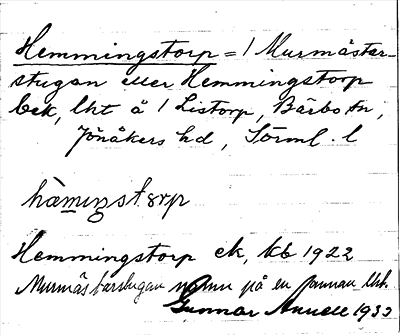 Hemmingstorp = 1 Murmästar-
stugan eller Hemmingstorp
bek, lht å 1 Listorp, Bärbo sn,
Jönåkers hd, Sörml. l
hàmiŋstɔrp
Hemmingstorp ek, kb 1922
Murmästarstugan namn på en annan lht.
Gunnar 1933